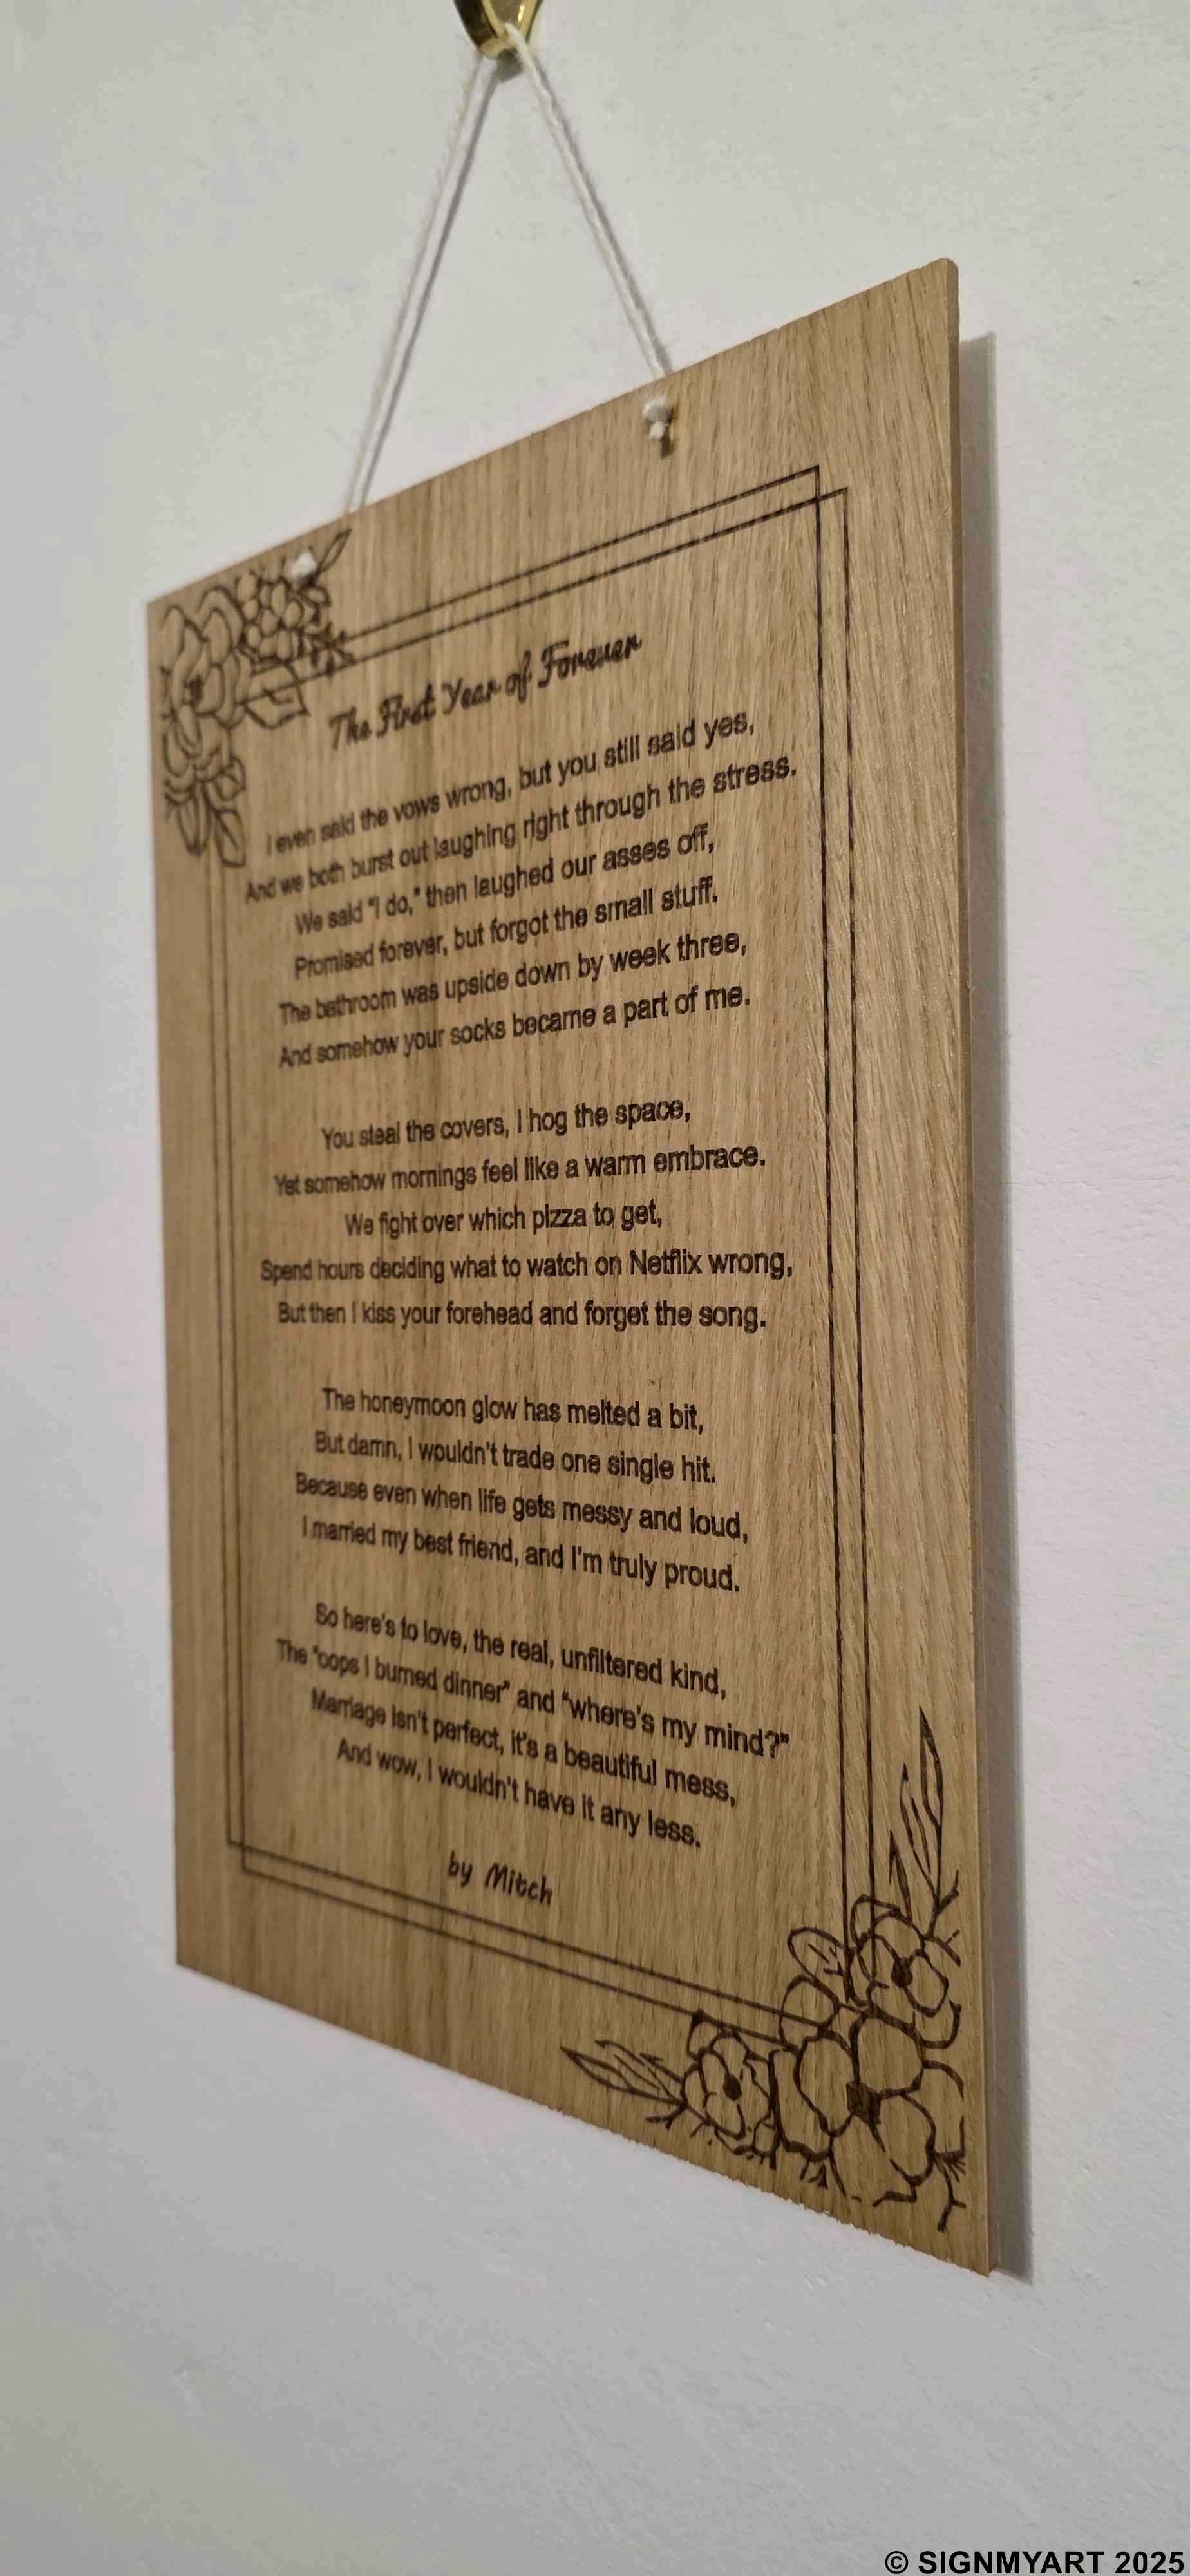 The First Year of Forever
I even said the vows wrong, but you still said yes,
And we both burst out laughing right through the stress.
We said "I do," then laughed our asses off,
Promised forever, but forgot the small stuff.
The bathroom was upside down by week three,
And somehow your socks became a part of me.
You steal the covers, I hog the space,
Yet somehow mornings feel like a warm embrace.
We fight over which pizza to get,
Spend hours deciding what to watch on Netflix wrong,
But then I kiss your forehead and forget the song.
The honeymoon glow has melted a bit,
But damn, I wouldn't trade one single hit.
Because even when life gets messy and loud,
I married my best friend, and I'm truly proud.
So here's to love, the real, unfiltered kind,
The "oops I burned dinner" and "where's my mind?"
Marriage isn't perfect, it's a beautiful mess,
And wow, I wouldn't have it any less.
by Mitch
© SIGNMYART 2025